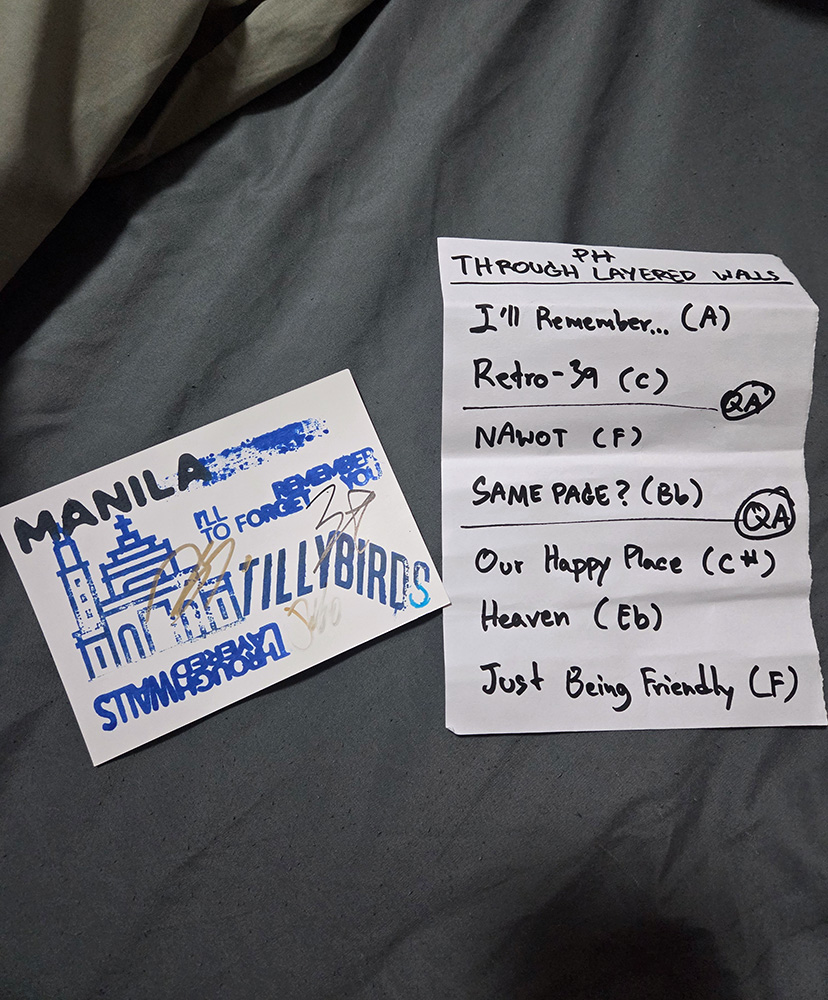 MANILA
I'LL REMEMBER
TO FORGET YOU
TILLYBIRDS
THROUGH
LAYERED
WALLS
PH
THROUGH LAYERED WALLS
I'll Remember... (A)
Retro-39 (C)
QA
NAWOT (F)
SAME PAGE? (Bb)
QA
Our Happy Place (C#)
Heaven (Eb)
Just Being Friendly (F)